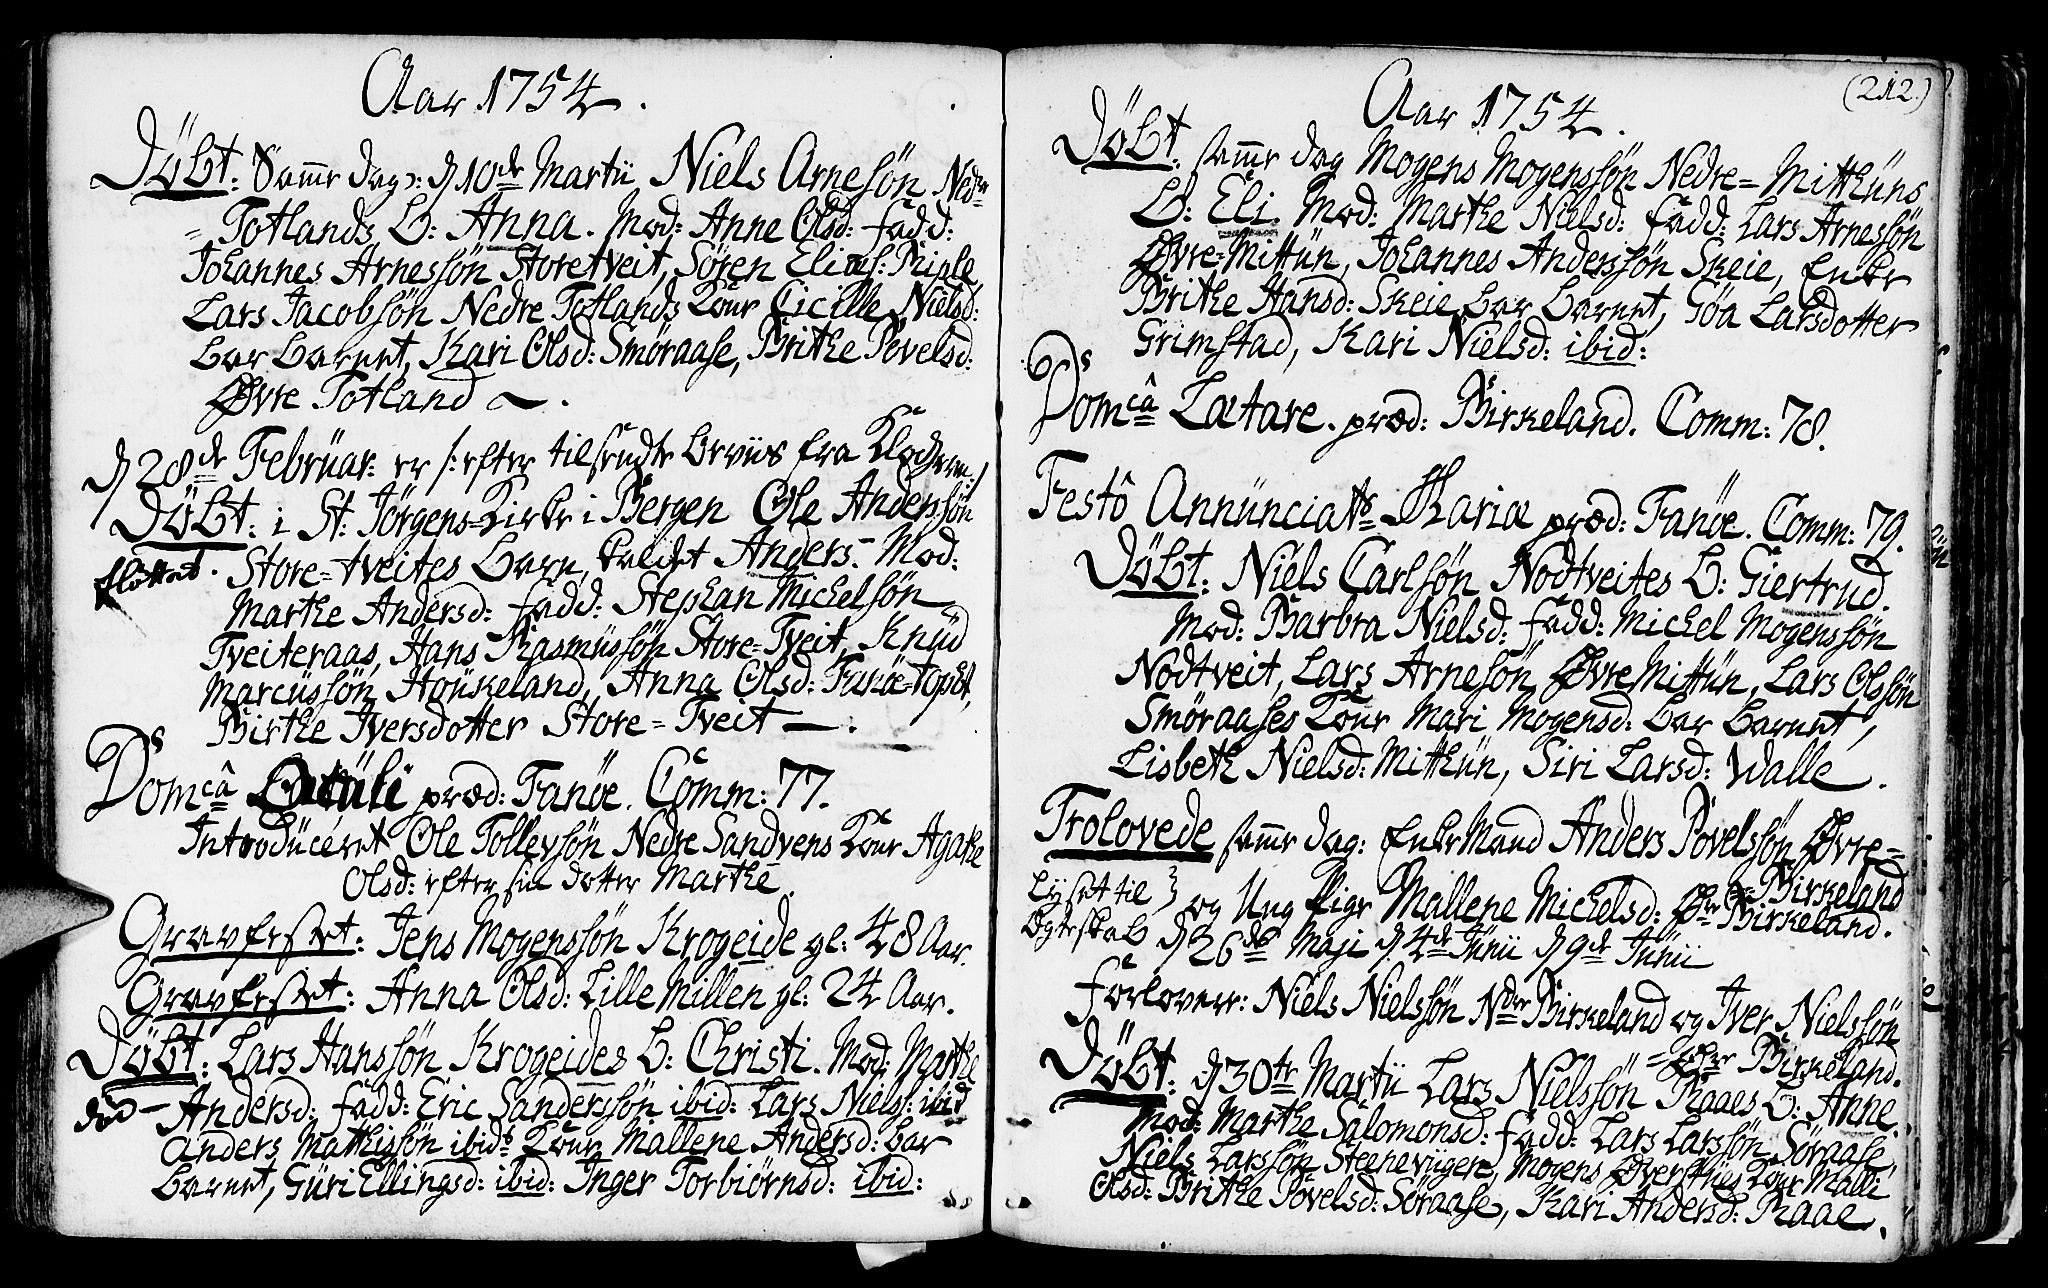 Aar 1754.
Döbt: Samme dag: d 10de Martii Niels Arnesön Nedr=
=Totlands b: Anna. Mod: Anne Olsd: fadd:
Johannes Arnessön Storetveit, Sören Elias: Riple,
Lars Jacobsön Nedre Totlands Kone Cicille Nielsd:
bar barnet, Kari Olsd: Smöraase, Brithe Povelsd:
Øvre Totland.
d 28de Februar: er /:efter tilsendte beviis fra Klokeren:/
Döbt: i St: Jörgens=Kirke i Bergen Ole Anderssön
Store=tveites barn, kaldet Anders. Mod:
flöttet.
Marthe Andersd: fadd: Stephan Michelsön
Tveiteraas, Hans Rasmussön Store=Tveit, Knud
Marcussön Houkeland, Anna Olsd: Fanöe=Topst,
Birthe Iversdotter Store=Tveit.
Ds
Domcâ Oculi præd: Fanöe. Comm: 77.
Introduceret Ole Tollevsön Nedre Sandvens Kone Agathe
Olsd: efter sin dotter Marthe.
Gravfestet: Jens Mogenssön Krogeide gl: 48 Aar.
Gravfestet: Anna Olsd: Lille Millen gl: 24 Aar.
Döbt: Lars Hanssön Krogeides b: Christi. Mod: Marthe
död Andersd: fadd: Eric Sanderssön ibid: Lars Niels: ibid
Anders Mathiasön ibids Kone Mallene Andersd: bar
barnet, Guri Ellingsd: ibid: Inger Torbiörnsd: ibid:
(212.)
Aar 1754.
Döbt: samme dag Mogens Mogenssön Nedre=Mitthuns
b: Eli. Mod: Marthe Nielsd: fadd: Lars Arnessön
Øvre=Mittun, Johannes Anderssön Skeie, Enke
Brithe Hansd: Skeie bar barnet, Göa Larsdotter
Grimstad, Kari Nielsd: ibid:
Ds
Domcâ Lætare. præd: Birkeland. Comm: 78.
Festô Annunciats Mariæ præd: Fanöe. Comm: 79.
Döbt: Niels Carlsön Nodtveites b: Giertrud.
Mod: Barbra Nielsd: fadd: Michel Mogenssön
Nodtveit, Lars Arnesön Øvre Mittun, Lars Olssön
Smöraases Kone Mari Mogensd: bar barnet,
Lisbeth Nielsd: Mitthun, Siri Larsd: Walle.
Trolovede samme dag: Enke Mand Anders Povelssön Øvre=
=Birkeland
Lyset til og Ung Pige Mallene Michelsd: Øvre Birkeland.
Ægteskab d 26de Maji d 4de Junii d 9de Junii
Forlovere: Niels Nielssön Ndre Birkeland og Iver Nielssön
=Øvre Birkeland.
Döbt: d 30te Martii Lars Nielssön Raaes b: Anne.
Mod: Marthe Salomonsd: fadd: Lars Larssön Söraase,
Niels Larssön Steenevigen, Mogens Øvre Kone Malli
Olsd: Brithe Povelsd: Söraase, Kari Andersd: Raae.